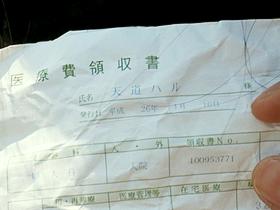 医療費領収書
氏名 天道ハル 様
発行日 平成 26年 1月 16日
科 入・外 領収書No.
入院 100953771
初・再診療 医療管理等 在宅医療